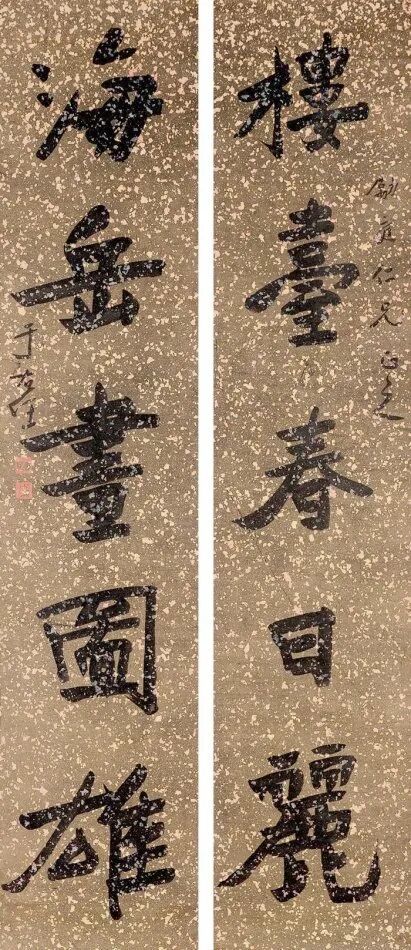 庭仁兄正之
樓臺春日麗
海岳畫圖雄
于